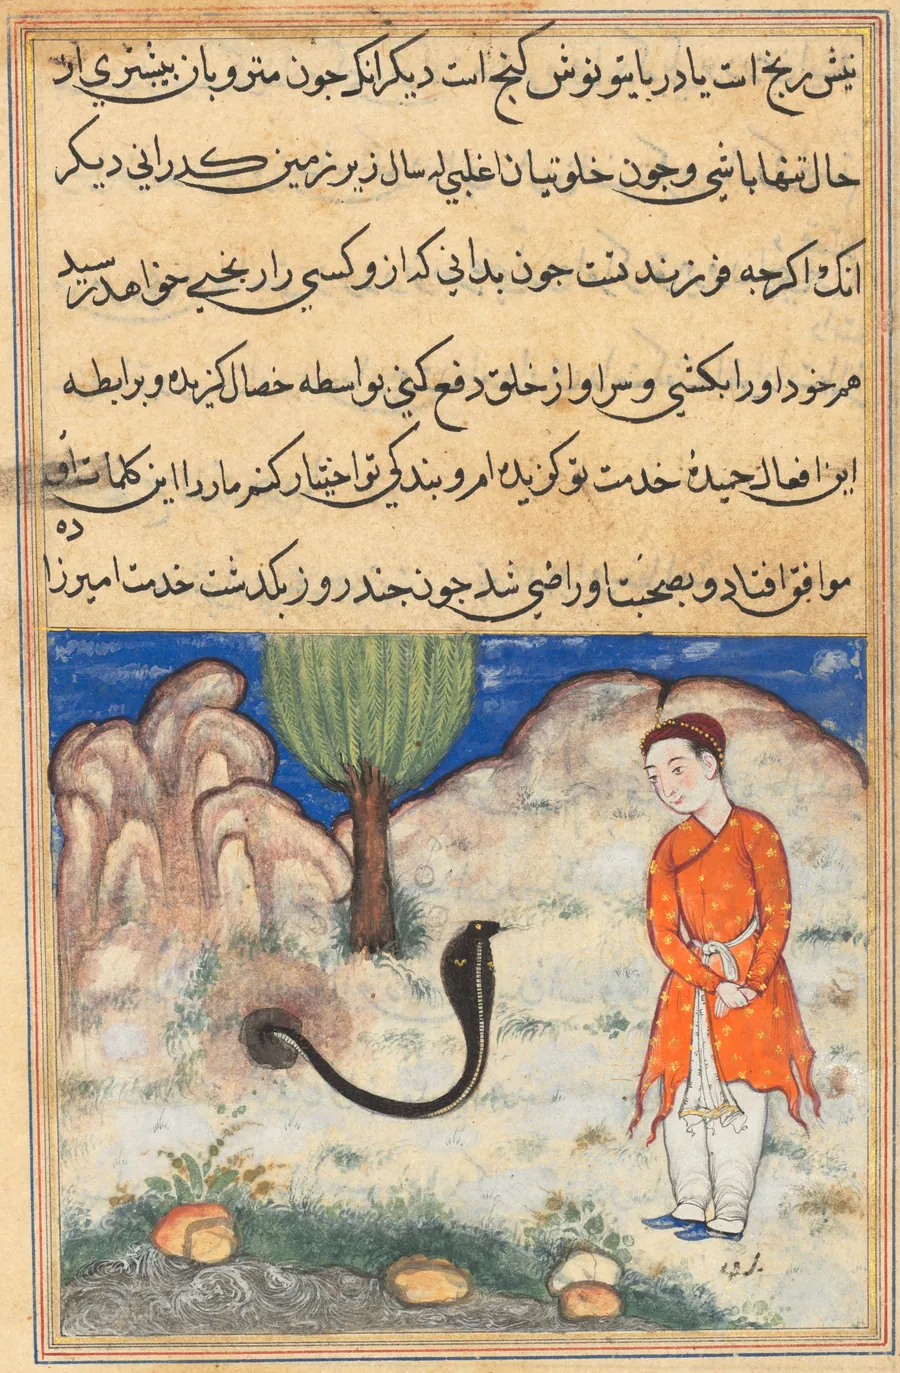 نیش رنج است یا در بابتو نوش کنج است دیکر انک جون متروبان بیشتری از
حال تنها باشی و جون خلوتیان اغلبی له سال زیر زمین کدرانی دیکر
انک اکرجه فرزند تست جون بدانی که از و کسی را ربخی خواهد رسید
هم خود اورا بکشی و سر او از خلق دفع کنی بواسطه خصال کزیده و برابطه
این افعال حمیدهٔ خدمت تو کوزیده ام و بندکی تو اختیار کنم مار را این کلمات او
ده
موافق افتاد و بصحبت او راضی شد جون جند روز بکذشت خدمت امیرزا